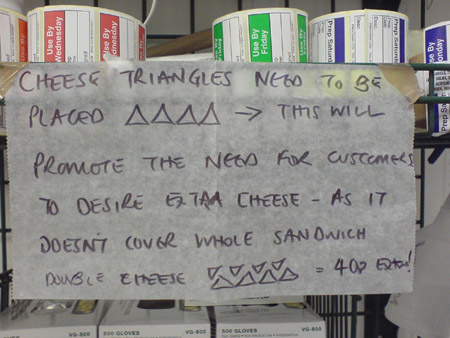 Use By Wednesday
Use By Friday
Prep Saturday
CHEESE TRIANGLES NEED TO BE
PLACED △△△△ → THIS WILL
PROMOTE THE NEED FOR CUSTOMERS
TO DESIRE EXTRA CHEESE - AS IT
DOESN'T COVER WHOLE SANDWICH
DOUBLE CHEESE △▽△▽△▽△ = 40p EXTRA!
VG-800 500 GLOVES VG-800 500 GLOVES VG-800